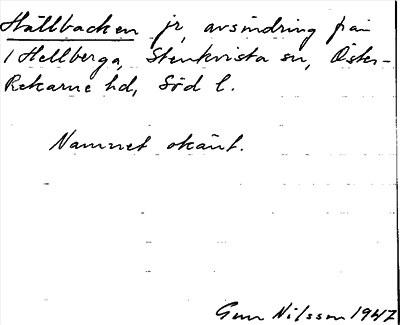 Hällbacken jr, avsöndring från
1 Hellberga, Stenkvista sn, Öster-
Rekarne hd, Söd l.
Namnet okänt.
Gun Nilsson 1947